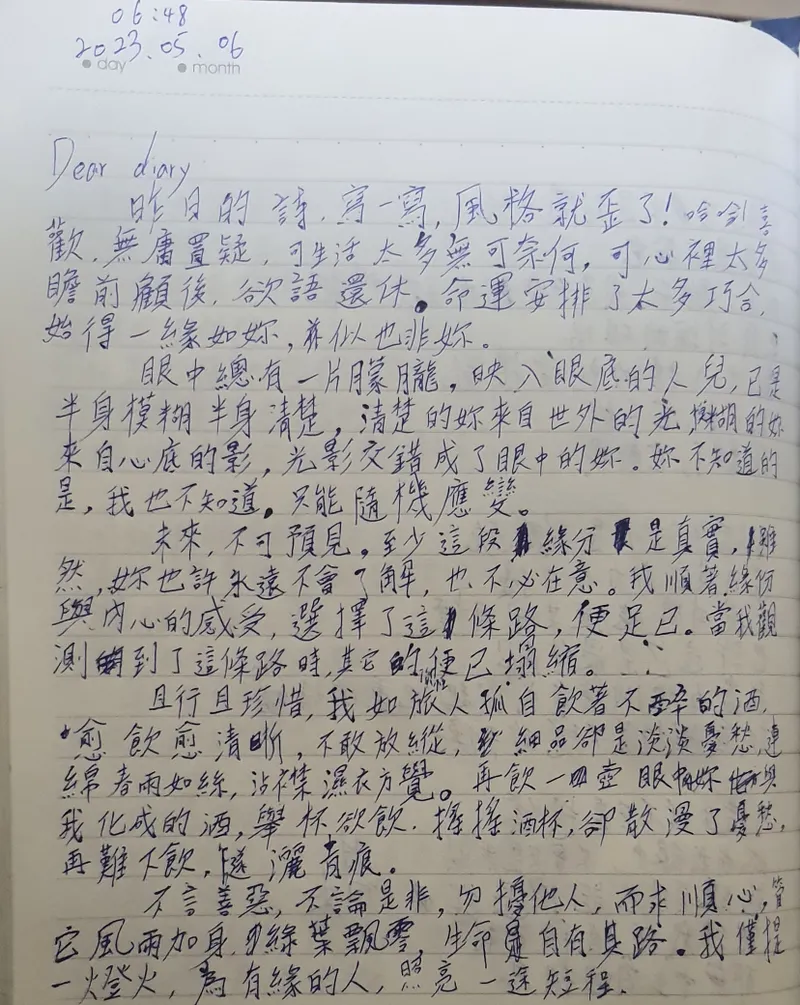 06:48
2023.05.06
day month
Dear diary
昨日的詩,寫一寫,風格就歪了!哈哈!喜
歡,無庸置疑,可生活太多無可奈何,可心裡太多
瞻前顧後,欲語還休。命運安排了太多巧合,
始得一緣如妳,并似也非妳。
眼中總有一片朦朧,映入眼底的人兒,已是
半身模糊半身清楚,清楚的妳來自世外的光,模糊的妳
來自心底的影,光影交錯成了眼中的妳。妳不知道的
是,我也不知道。只能隨機應變。
未來,不可預見。至少這段緣分是真實,雖
然,妳也許永遠不會了解,也不必在意。我順著緣份
與內心的感受,選擇了這條路,便足已。當我觀
測到了這條路時,其它的便已塌縮。
且行且珍惜,我如旅人孤自飲著不醉的酒,
愈飲愈清晰,不敢放縱,細品卻是淡淡憂愁,連
綿春雨如絲,沾襟濕衣方覺。再飲一壺眼中妳與
我化成的酒,舉杯欲飲,搖搖酒杯,卻散漫了憂愁,
再難下飲,隨灑青痕。
不言善惡,不論是非,勿擾他人,而求順心,管
它風雨加身,綠葉飄零,生命自有其路。我僅提
一燈火,為有緣的人,照亮一途短程。